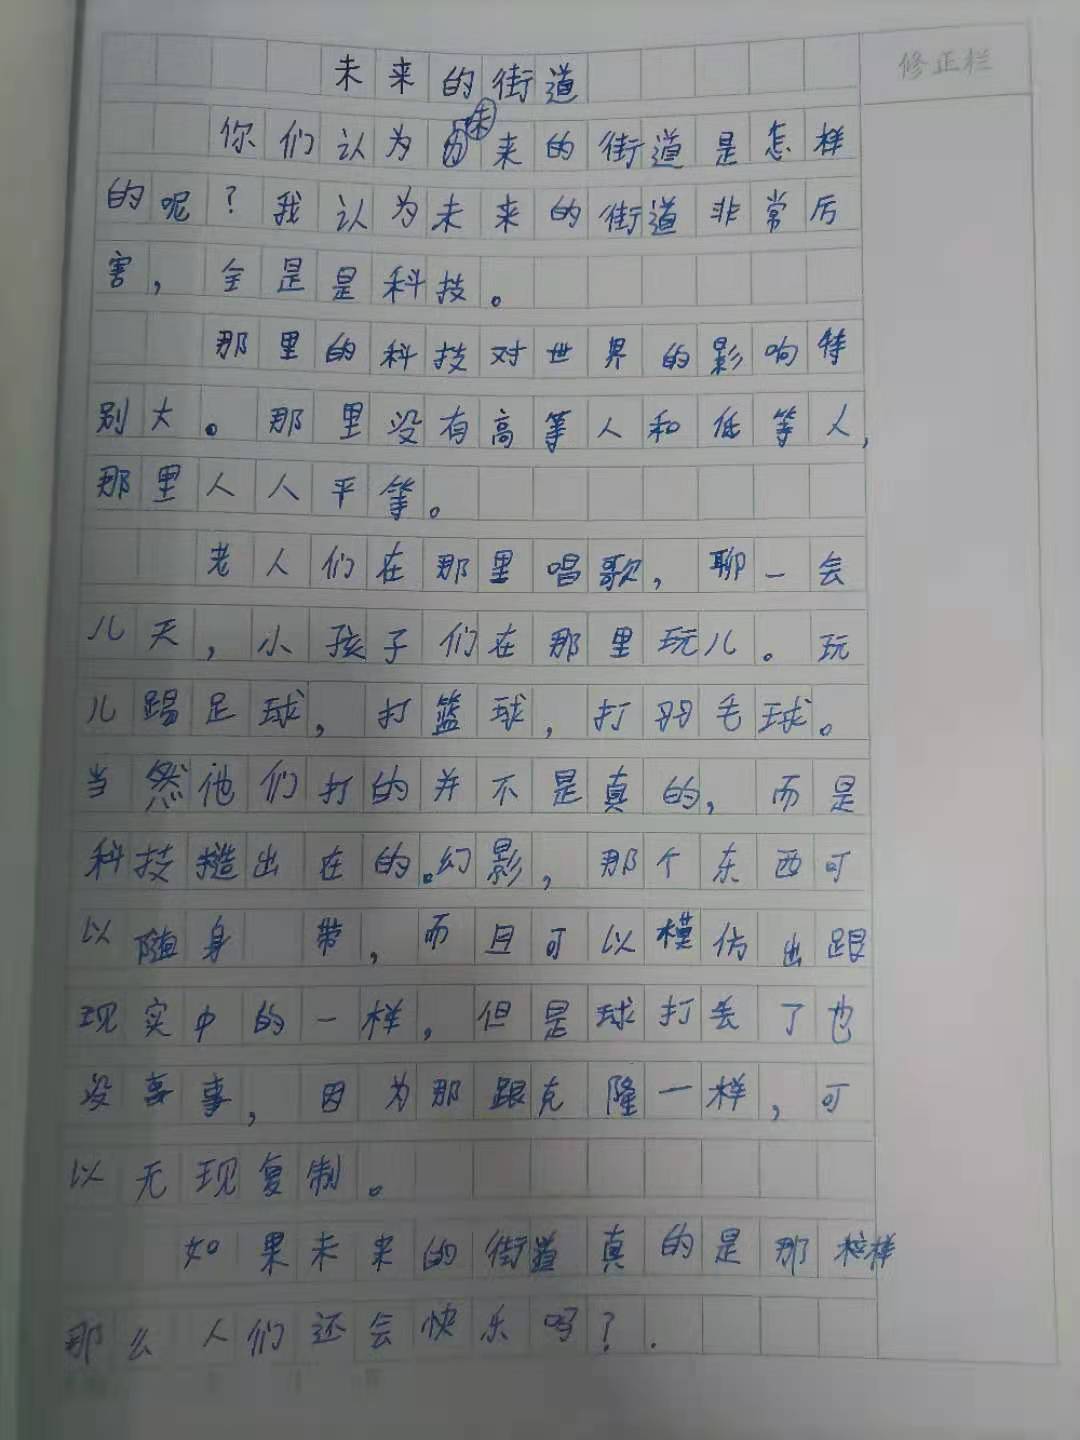 未来的街道
修正栏
你们认为未来的街道是怎样
的呢？我认为未来的街道非常厉
害，全是是科技。
那里的科技对世界的影响特
别大。那里没有高等人和低等人，
那里人人平等。
老人们在那里唱歌，聊一会
儿天，小孩子们在那里玩儿。玩
儿踢足球，打篮球，打羽毛球。
当然他们打的并不是真的，而是
科技造出在的幻影，那个东西可
以随身带，而且可以模仿出跟
现实中的一样，但是球打丢了也
没事，因为那跟克隆一样，可
以无现复制。
如果未来的街道真的是那样
那么人们还会快乐吗？